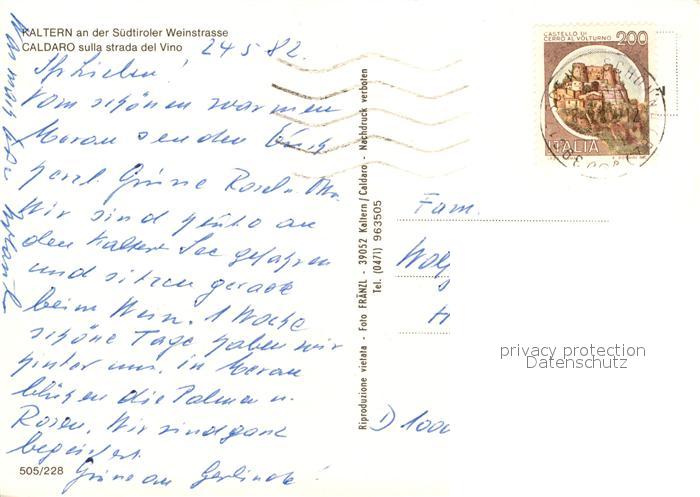 KALTERN an der Südtiroler Weinstrasse
CALDARO sulla strada del Vino
24.5.82
Vom schönen warmen
Meran senden Euch
herzl. Grüsse
Wir sind heute an
den Kalterer See gefahren
und sitzen gerade
beim Wein. 1 Woche
schöne Tage haben wir
hinter uns. in Meran
blühen die Palmen u.
Rosen. Wir sind ganz
begeistert.
505/228
Riproduzione vietata - Foto FRÄNZL - 39052 Kaltern/Caldaro - Nachdruck verboten
Tel. (0471) 963505
CASTELLO DI
CERRO AL VOLTURNO
200
ITALIA
Fam.
Wolf
D 1000
privacy protection
Datenschutz